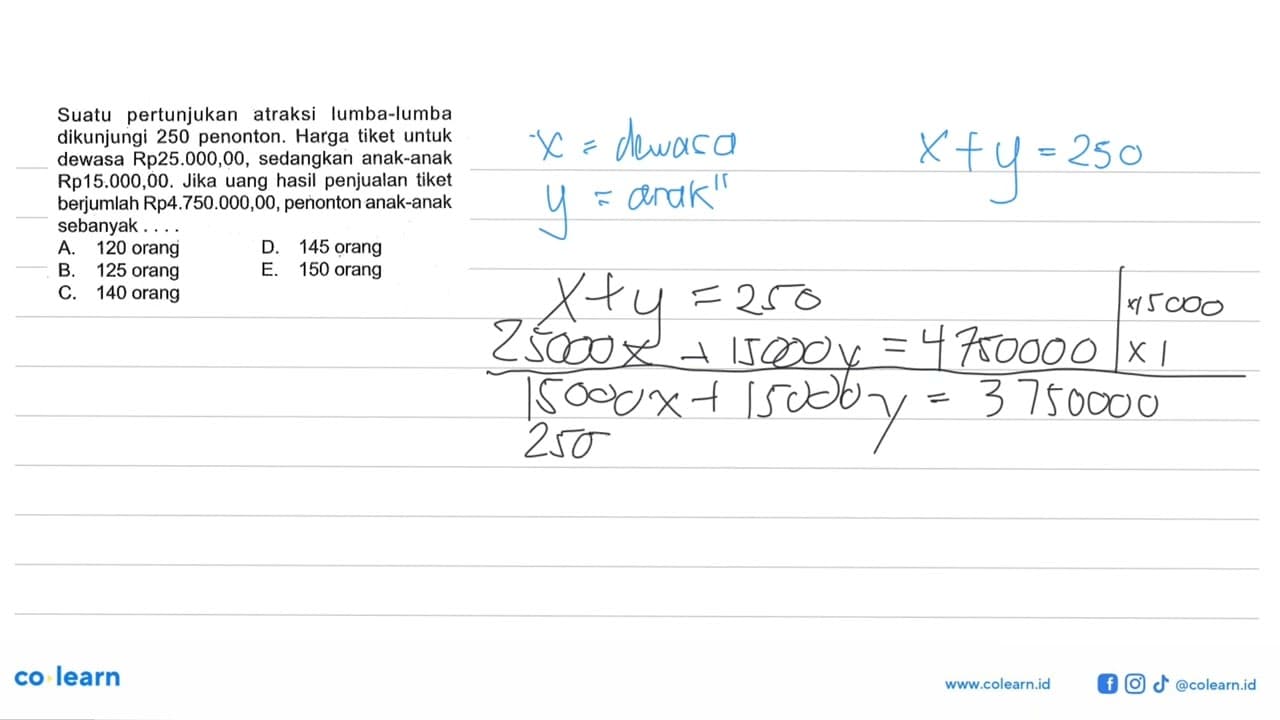 Suatu pertunjukan atraksi lumba-lumba
dikunjungi 250 penonton. Harga tiket untuk
dewasa Rp25.000,00, sedangkan anak-anak
Rp15.000,00. Jika uang hasil penjualan tiket
berjumlah Rp4.750.000,00, penonton anak-anak
sebanyak . . . .
A. 120 orang D. 145 orang
B. 125 orang E. 150 orang
C. 140 orang
x = dewasa
y = anak"
x + y = 250
x + y = 250 | x15000
25000x + 15000y = 4750000 | x 1
15000x + 15000y = 3750000
250
co learn
www.colearn.id
@colearn.id